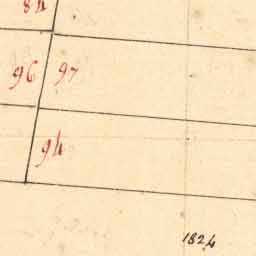 84
96 97
94
1824